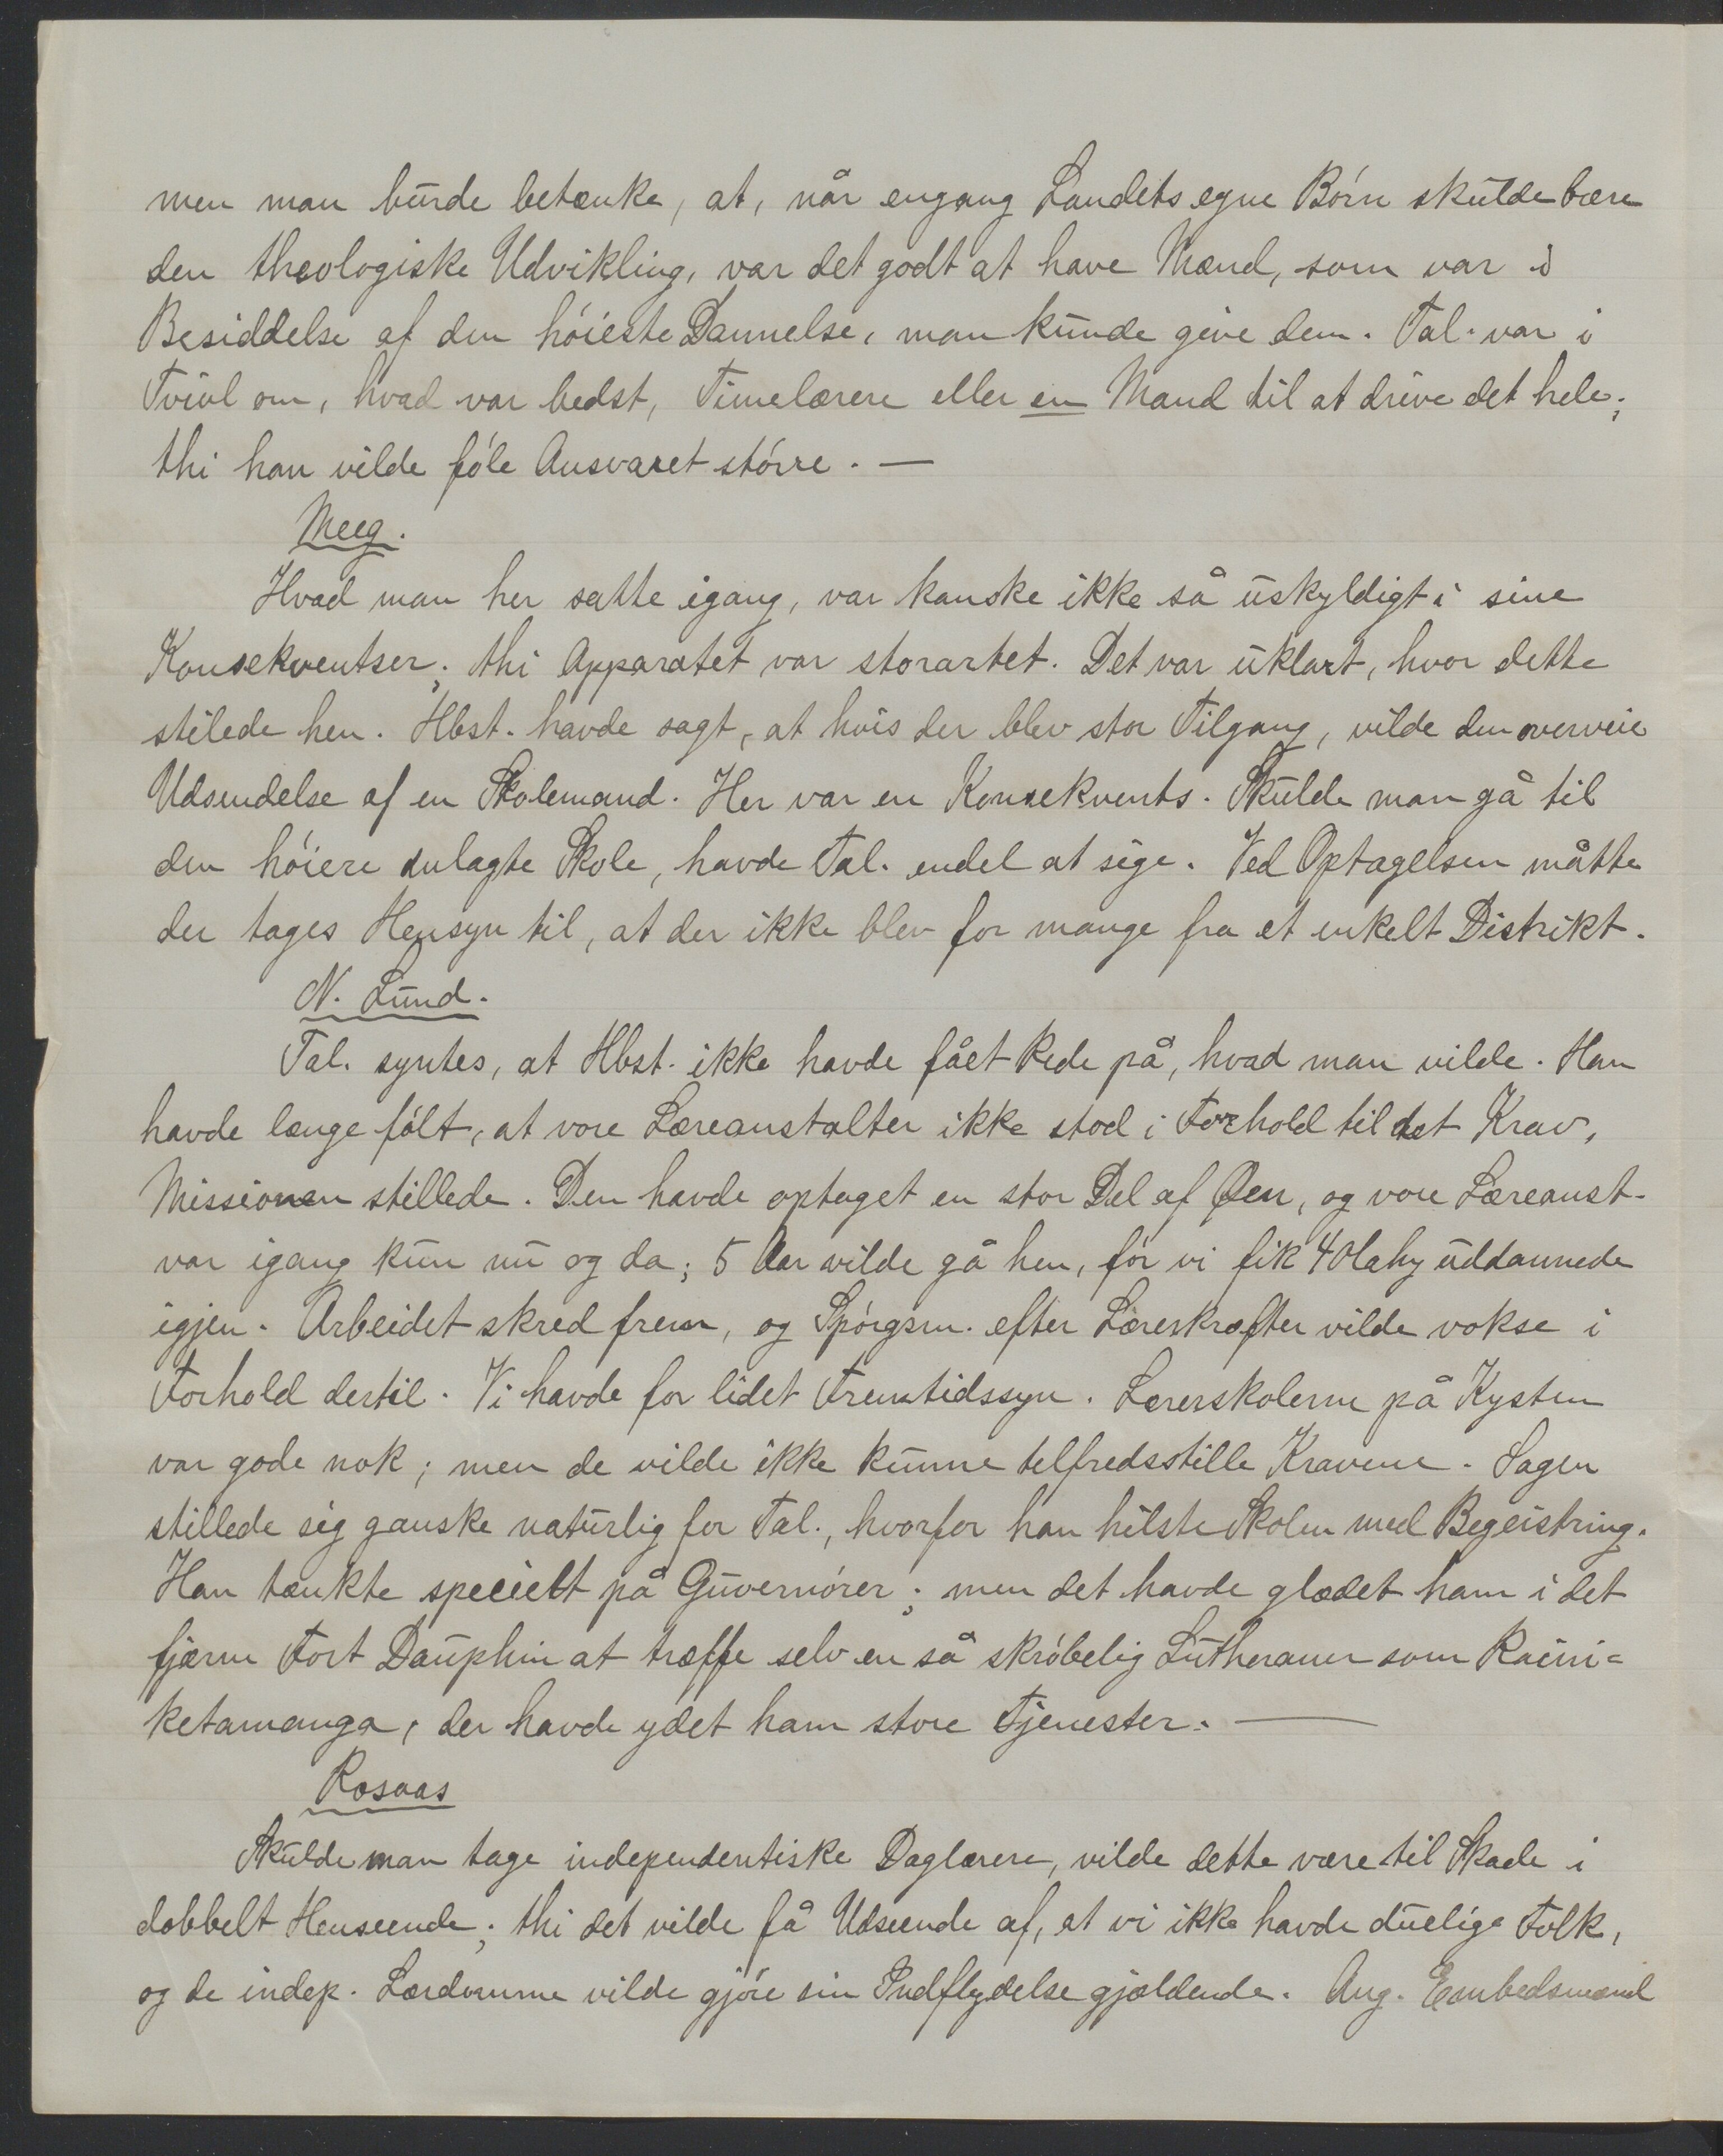 men man burde betænke, at, når engang Landets egne Børn skulde bære
den theologiske Udvikling, var det godt at have Mænd, som var i
Besiddelse af den høieste Dannelse, man kunde give dem. Tal. var i
Tvivl om, hvad var bedst, Timelærere eller en Mand til at drive det hele;
thi han vilde føle Ansvaret større. —
Meeg.
Hvad man her satte igang, var kanske ikke så uskyldigt i sine
Konsekventser; thi Apparatet var storartet. Det var uklart, hvor dette
stilede hen. Hbst. havde sagt, at hvis der blev stor Tilgang, vilde den overveie
Udsendelse af en Skolemand. Her var en Konsekvents. Skulde man gå til
den høiere anlagte Skole, havde Tal. endel at sige. Ved Optagelsen måtte
der tages Hensyn til, at der ikke blev for mange fra et enkelt Distrikt.
N. Lund.
Tal. syntes, at Hbst. ikke havde fået Rede på, hvad man vilde. Han
havde længe følt, at vore Læreanstalter ikke stod i Forhold til det Krav,
Missionen stillede. Den havde optaget en stor Del af Øen, og vore Læreanst.
var igang kun nu og da; 5 Aar vilde gå hen, før vi fik 40 lahy uddannede
igjen. Arbeidet skred frem, og Spørgsm. efter Lærerkræfter vilde vokse i
Forhold dertil. Vi havde for lidet Fremtidssyn. Lærerskolerne på Kysten
var gode nok; men de vilde ikke kunne telfredsstille Kravene. Sagen
stillede sig ganske naturlig for Tal., hvorfor han hilste Skolen med Begeistring.
Han tænkte specielt på Guvernører; men det havde glædet ham i det
fjærne Fort Dauphin at træffe selv en så skrøbelig Lutheraner som Raini=
ketamanga, der havde ydet ham store Tjenester. —
Rosaas
Skulde man tage independentiske Daglærere, vilde dette være til Skade i
dobbelt Henseende; thi det vilde få Udseende af, at vi ikke havde duelige Folk,
og de indep. Lærdomme vilde gjøre sin Indflydelse gjældende. Ang. Embedsmænd